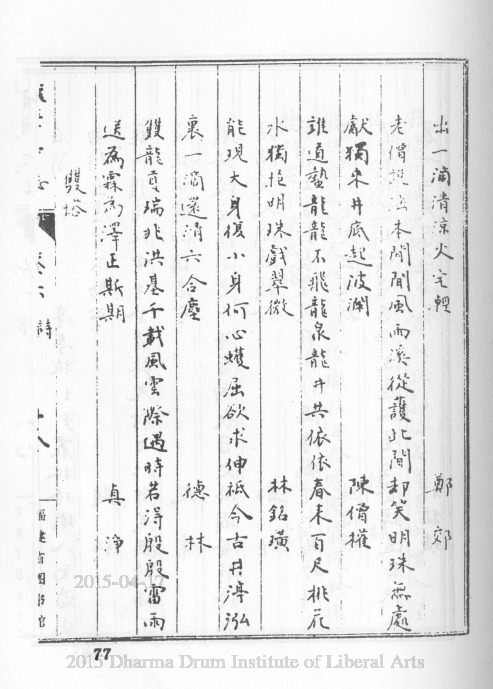 出一滴清涼火宅裡 鄭郊
老僧說法本閒閒風雨溪從護此間却笑明珠無處
獻獨來井底起波瀾 陳僧
誰道蟄龍龍不飛龍泉龍井共依依春来百尺桃花
水獨抱明珠戲翠微 林銘璜
能現大身復小身何心蠖屈欲求伸祇今古井渟泓
裏一滴還清六合塵 德林
雙龍瑞兆洪基千載風雲際遇時若得殷殷雷雨
送為霖為澤正斯期 真淨
雙塔
卷六 詩
福建省图书馆
77
2015-04-17
2015 Dharma Drum Institute of Liberal Arts